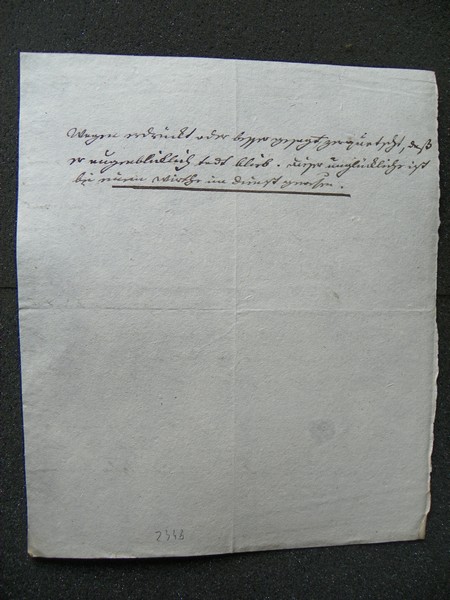 Wagen erdrückt oder besser gesagt zerquetscht, daß
er augenblicklich todt blieb. dieser unglückliche ist
bei einem Wirthe im dienst gewesen.